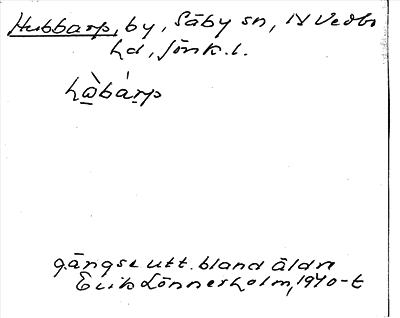 Hubbarp, by, Säby sn, N Vedbo
hd, Jönk. l.
hàbárp
gängse utt. bland äldre
Erik Lönnerholm, 1940-t